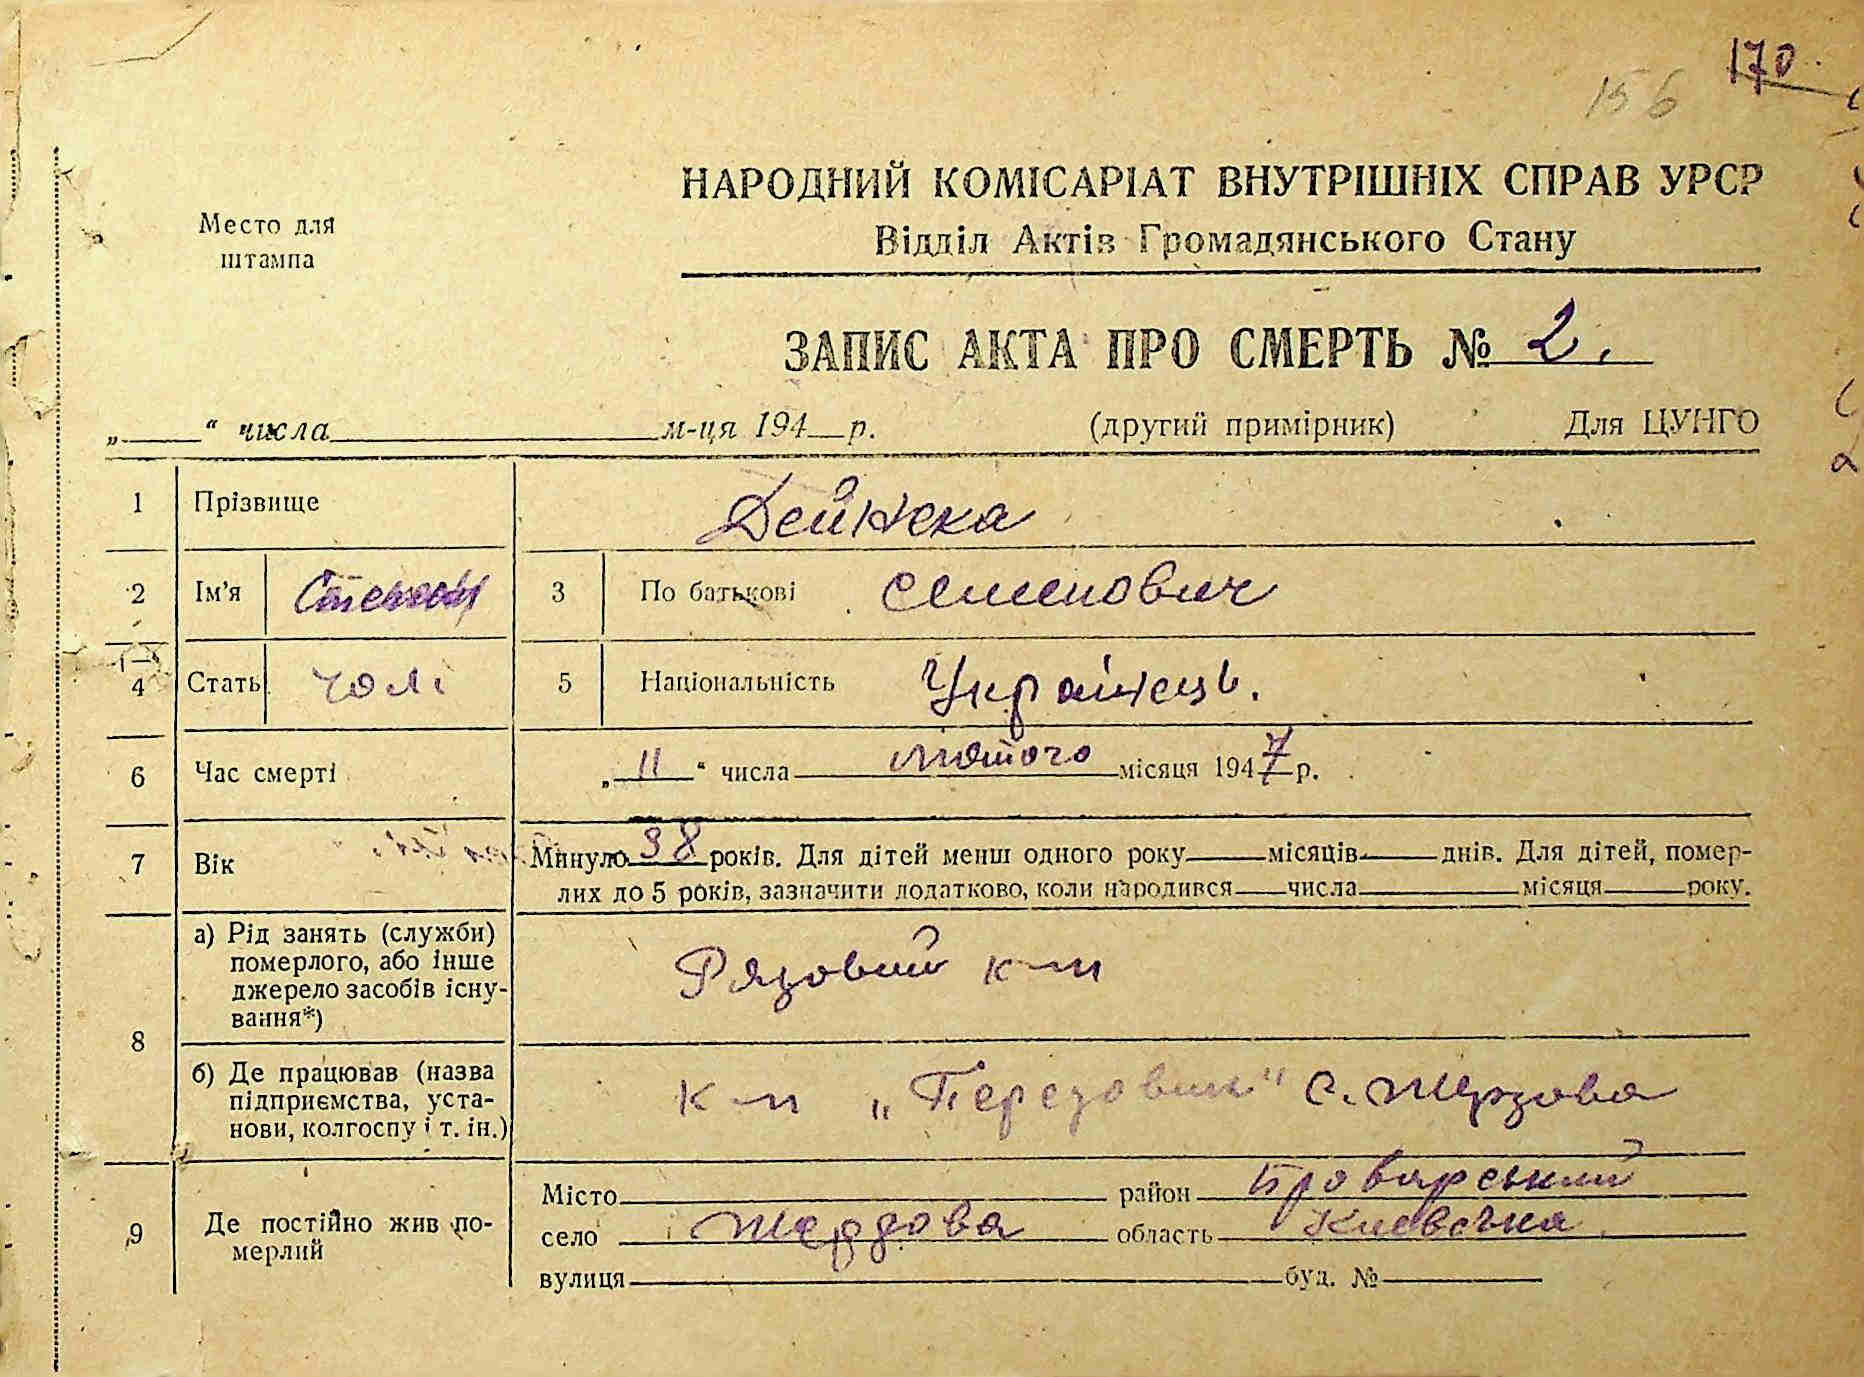 170.
156
НАРОДНИЙ КОМІСАРІАТ ВНУТРІШНІХ СПРАВ УРСР
Место для
штампа
Відділ Актів Громадянського Стану
ЗАПИС АКТА ПРО СМЕРТЬ № 2.
„____“ числа____ м-ця 194__р. (другий примірник) Для ЦУНГО
1 Прізвище Дейнека
2 Ім'я Степан 3 По батькові Семенович
4 Стать чол. 5 Національність Українець.
6 Час смерті „11“ числа лютого місяця 1947 р.
7 Вік Минуло 38 років. Для дітей менш одного року____місяців____днів. Для дітей, помер-
лих до 5 років, зазначити додатково, коли народився____числа____місяця____року.
8 а) Рід занять (служби)
померлого, або інше
джерело засобів існу-
вання*)
Рядовий к-п
б) Де працював (назва
підприємства, уста-
нови, колгоспу і т. ін.)
к-п „Передовик“ с. Жердова
9 Де постійно жив по-
мерлий
Місто____ район Броварський
село Жердова область Киевська
вулиця____ буд. №____